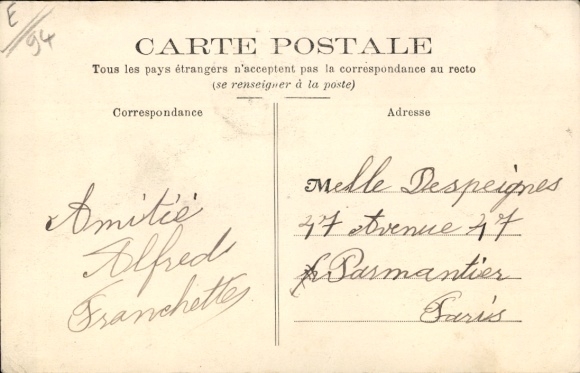 E
94
CARTE POSTALE
Tous les pays étrangers n'acceptent pas la correspondance au recto
(se renseigner à la poste)
Correspondance
Adresse
Amitié
Alfred
Franchettes
Melle Despeignes
47 Avenue 47
Parmantier
Paris